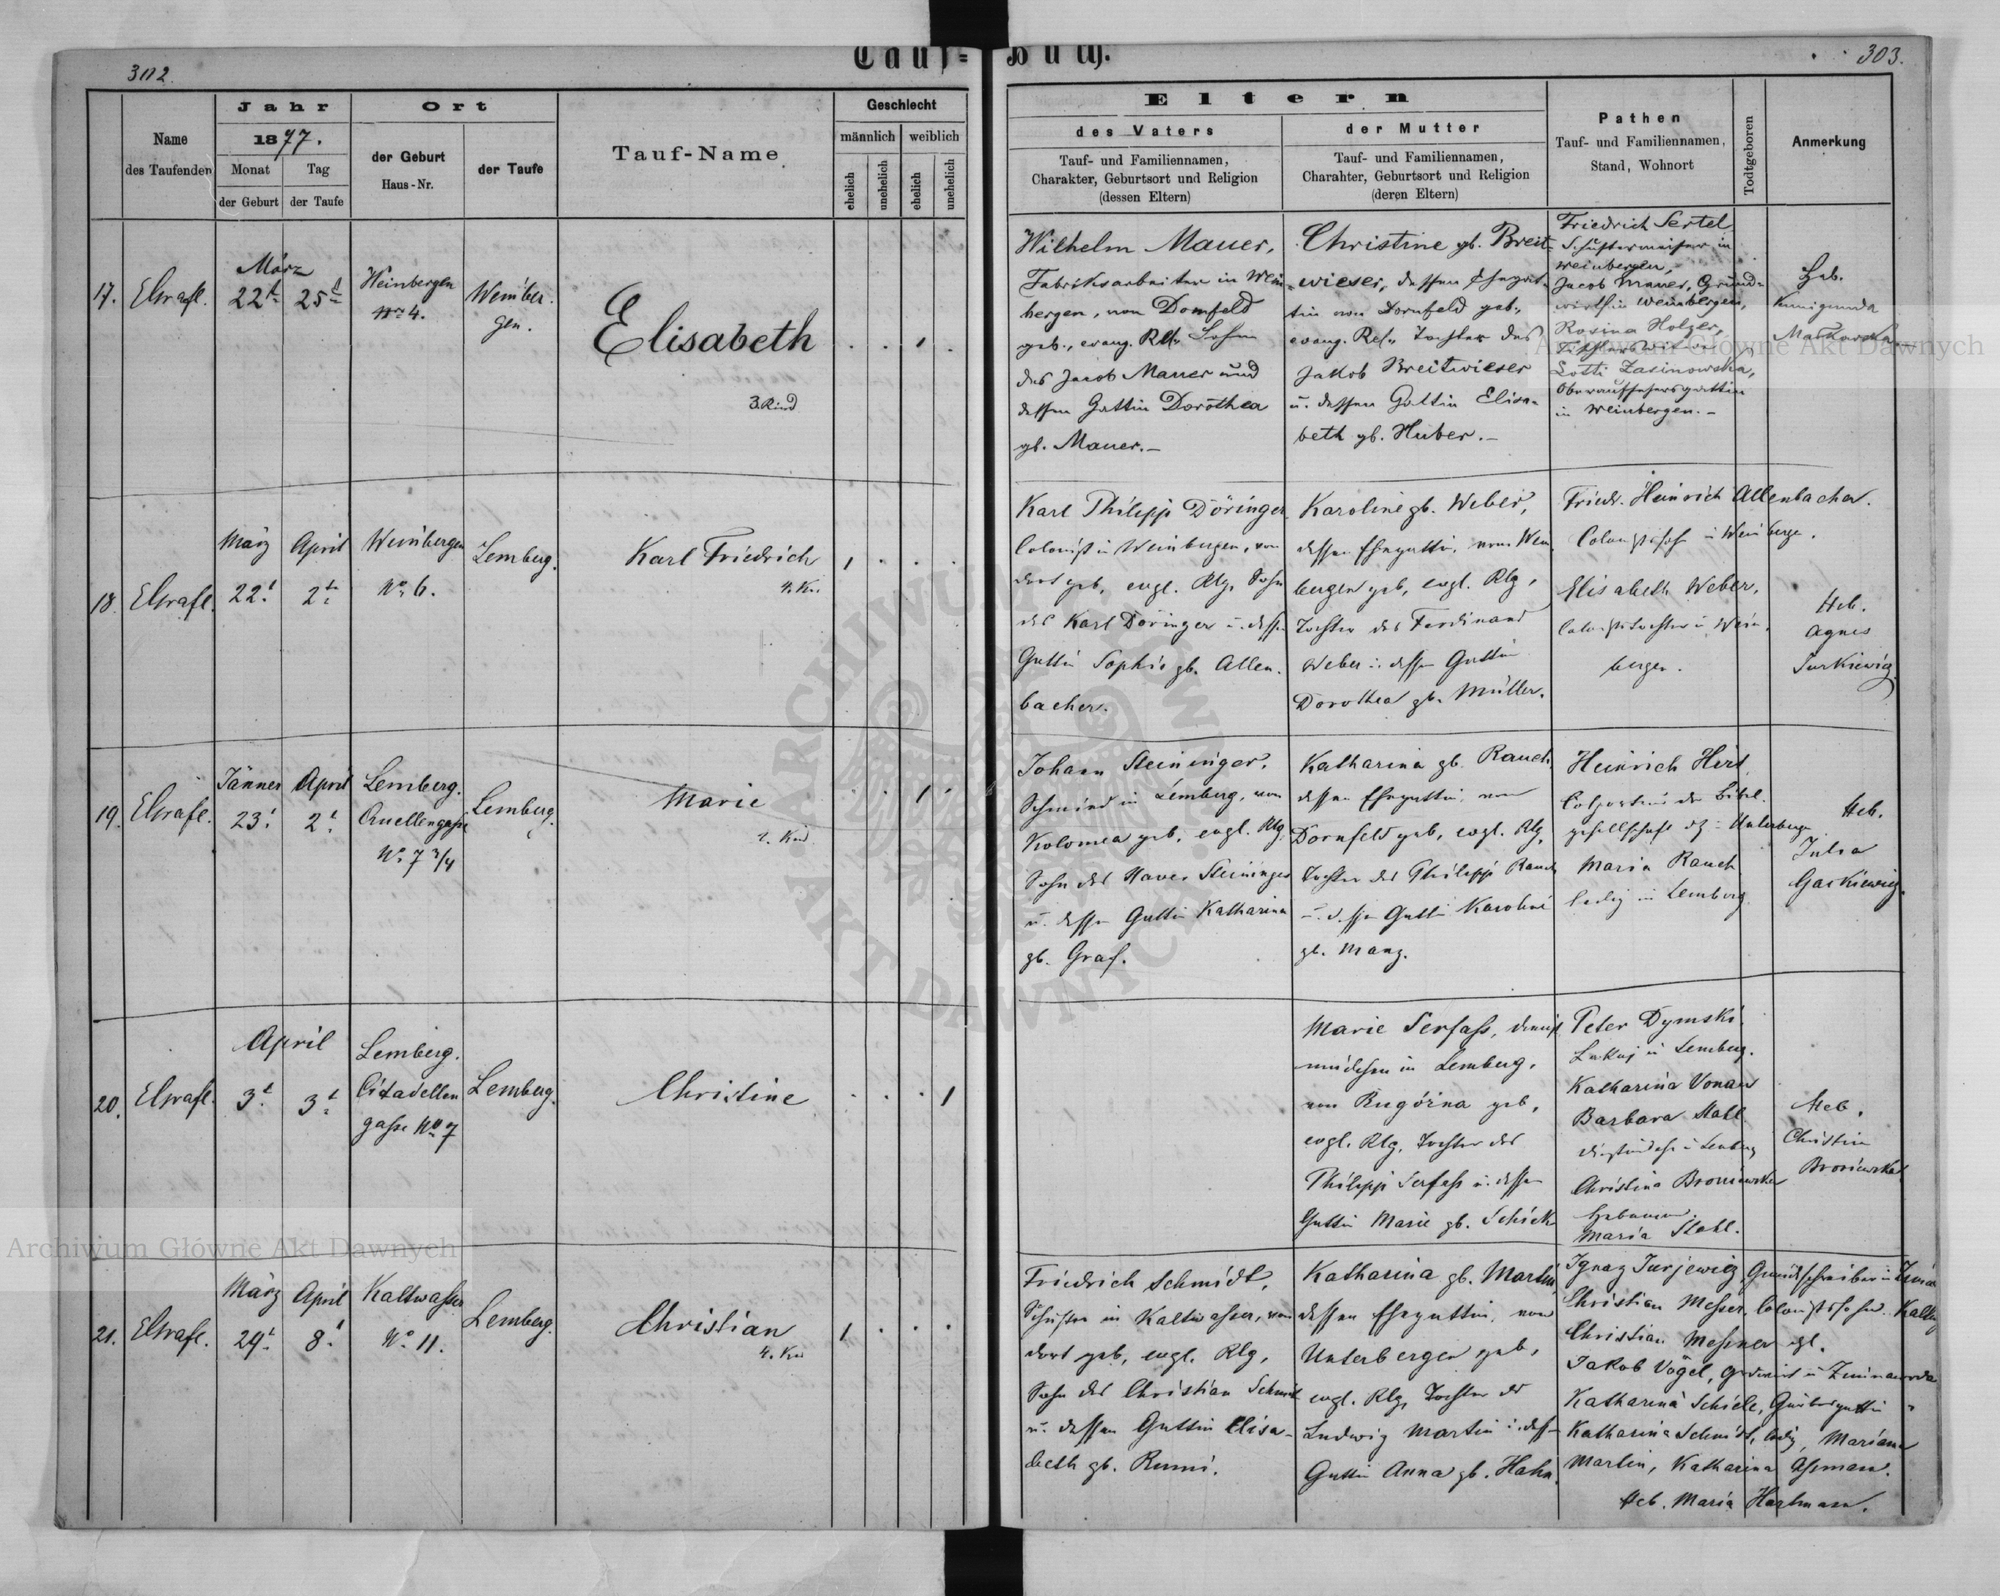 302.
Tauf=
Buch.
303.
Name
des Taufenden
Jahr
1877.
Monat
Tag
der Geburt
der Taufe
Ort
der Geburt
Haus-Nr.
der Taufe
Tauf-Name
Geschlecht
männlich
weiblich
ehelich
unehelich
ehelich
unehelich
Eltern
des Vaters
Tauf- und Familiennamen,
Charakter, Geburtsort und Religion
(dessen Eltern)
der Mutter
Tauf- und Familiennamen,
Charahter, Geburtsort und Religion
(deren Eltern)
Pathen
Tauf- und Familiennamen,
Stand, Wohnort
Todtgeboren
Anmerkung
17.
März
22t
25t
Weinbergen
No 4.
Weinber-
gen.
Elisabeth
3. Kind
Wilhelm Mauer,
Fabriksarbeiter in Wein-
bergen, von Dornfeld
geb., evang. Rel., Sohn
des Jacob Mauer und
dessen Gattin Dorothea
gb. Mauer.-
Christine gb. Breit-
wieser, dessen Ehegat-
tin von Dornfeld geb.,
evang. Rel., Tochter des
Jakob Breitwieser
u. dessen Gattin Elisa-
beth gb. Huber.-
Friedrich Sertel
Schustermeister in
Weinbergen,
Jacob Mauer, Grund-
wirth in Weinbergen,
Rosina Holzer,
Lotti Zasinowska,
Oberaufsehersgattin
in Weinbergen.-
Heb.
Kunigunda
18.
März
22t
April
2t
Weinbergen
No 6.
Lemberg.
Karl Friedrich
4. Ki.
Karl Philipp Döringer
Colonist in Weinbergen, von
dort geb, evgl. Rlg, Sohn
des Karl Döringer u. dessen
Gattin Sophie gb. Allen-
bacher.
Karoline gb. Weber,
dessen Ehegattin, von Wein
bergen geb, evgl. Rlg,
Tochter des Ferdinand
Weber u. dessen Gattin
Dorothea gb. Müller.
Friedr. Heinrich Allenbacher.
Colonistssohn in Weinbergen.
Elisabeth Weber,
Colonistentochter in Wein-
bergen.
Heb.
Agnes
Jurkiewicz
19.
Jänner
23t
April
2t
Lemberg.
Quellengasse
No 7 3/4
Lemberg.
Marie
1. Kind
Johann Steininger,
Schmied in Lemberg, von
Kolomea geb, evgl. Rlg,
Sohn des Xaver Steininger
u. dessen Gattin Katharina
gb. Graf.
Katharina gb. Rauch,
dessen Ehegattin, von
Dornfeld geb, evgl. Rlg,
Tochter des Philipp Rauch
u. dessen Gattin Karoline
gb. Manz.
Heinrich Hirt,
Colporteur der Bibel-
Maria Rauch
ledig in Lemberg
Heb.
Julia
20.
April
3t
3t
Lemberg.
Citadellen
gasse No 7
Lemberg.
Christine
Marie Serfass, Dienst-
mädchen in Lemberg,
geb,
evgl. Rlg, Tochter des
Philipp Serfass u. dessen
Gattin Marie gb. Schick
Peter Dymski,
Lakaj in Lemberg.
Katharina Vonau
Barbara Stahl
Dienstmädchen in Lemberg
Christina Broniewska
Hebamme.
Maria Stahl.
Heb.
Christine
Broniewska
21.
März
29t
April
8t
Kaltwasser
No 11.
Lemberg.
Christian
4. Kin
Friedrich Schmidt,
Schuster in Kaltwasser, von
dort geb, evgl. Rlg,
Sohn des Christian Schmidt
u. dessen Gattin Elisa-
beth gb.
Katharina gb. Martin,
dessen Ehegattin, von
Unterbergen geb,
evgl. Rlg, Tochter des
Ludwig Martin u. dess-
Gattin Anna gb. Hahn
Ignaz Jurjewicz
Christian Messner
Jakob Vogel,
Katharina
Katharina Schmidt, ledig, Mariane
Martin, Katharina
Heb. Maria Hartmann.
Archiwum Główne Akt Dawnych
Archiwum Główne Akt Dawnych